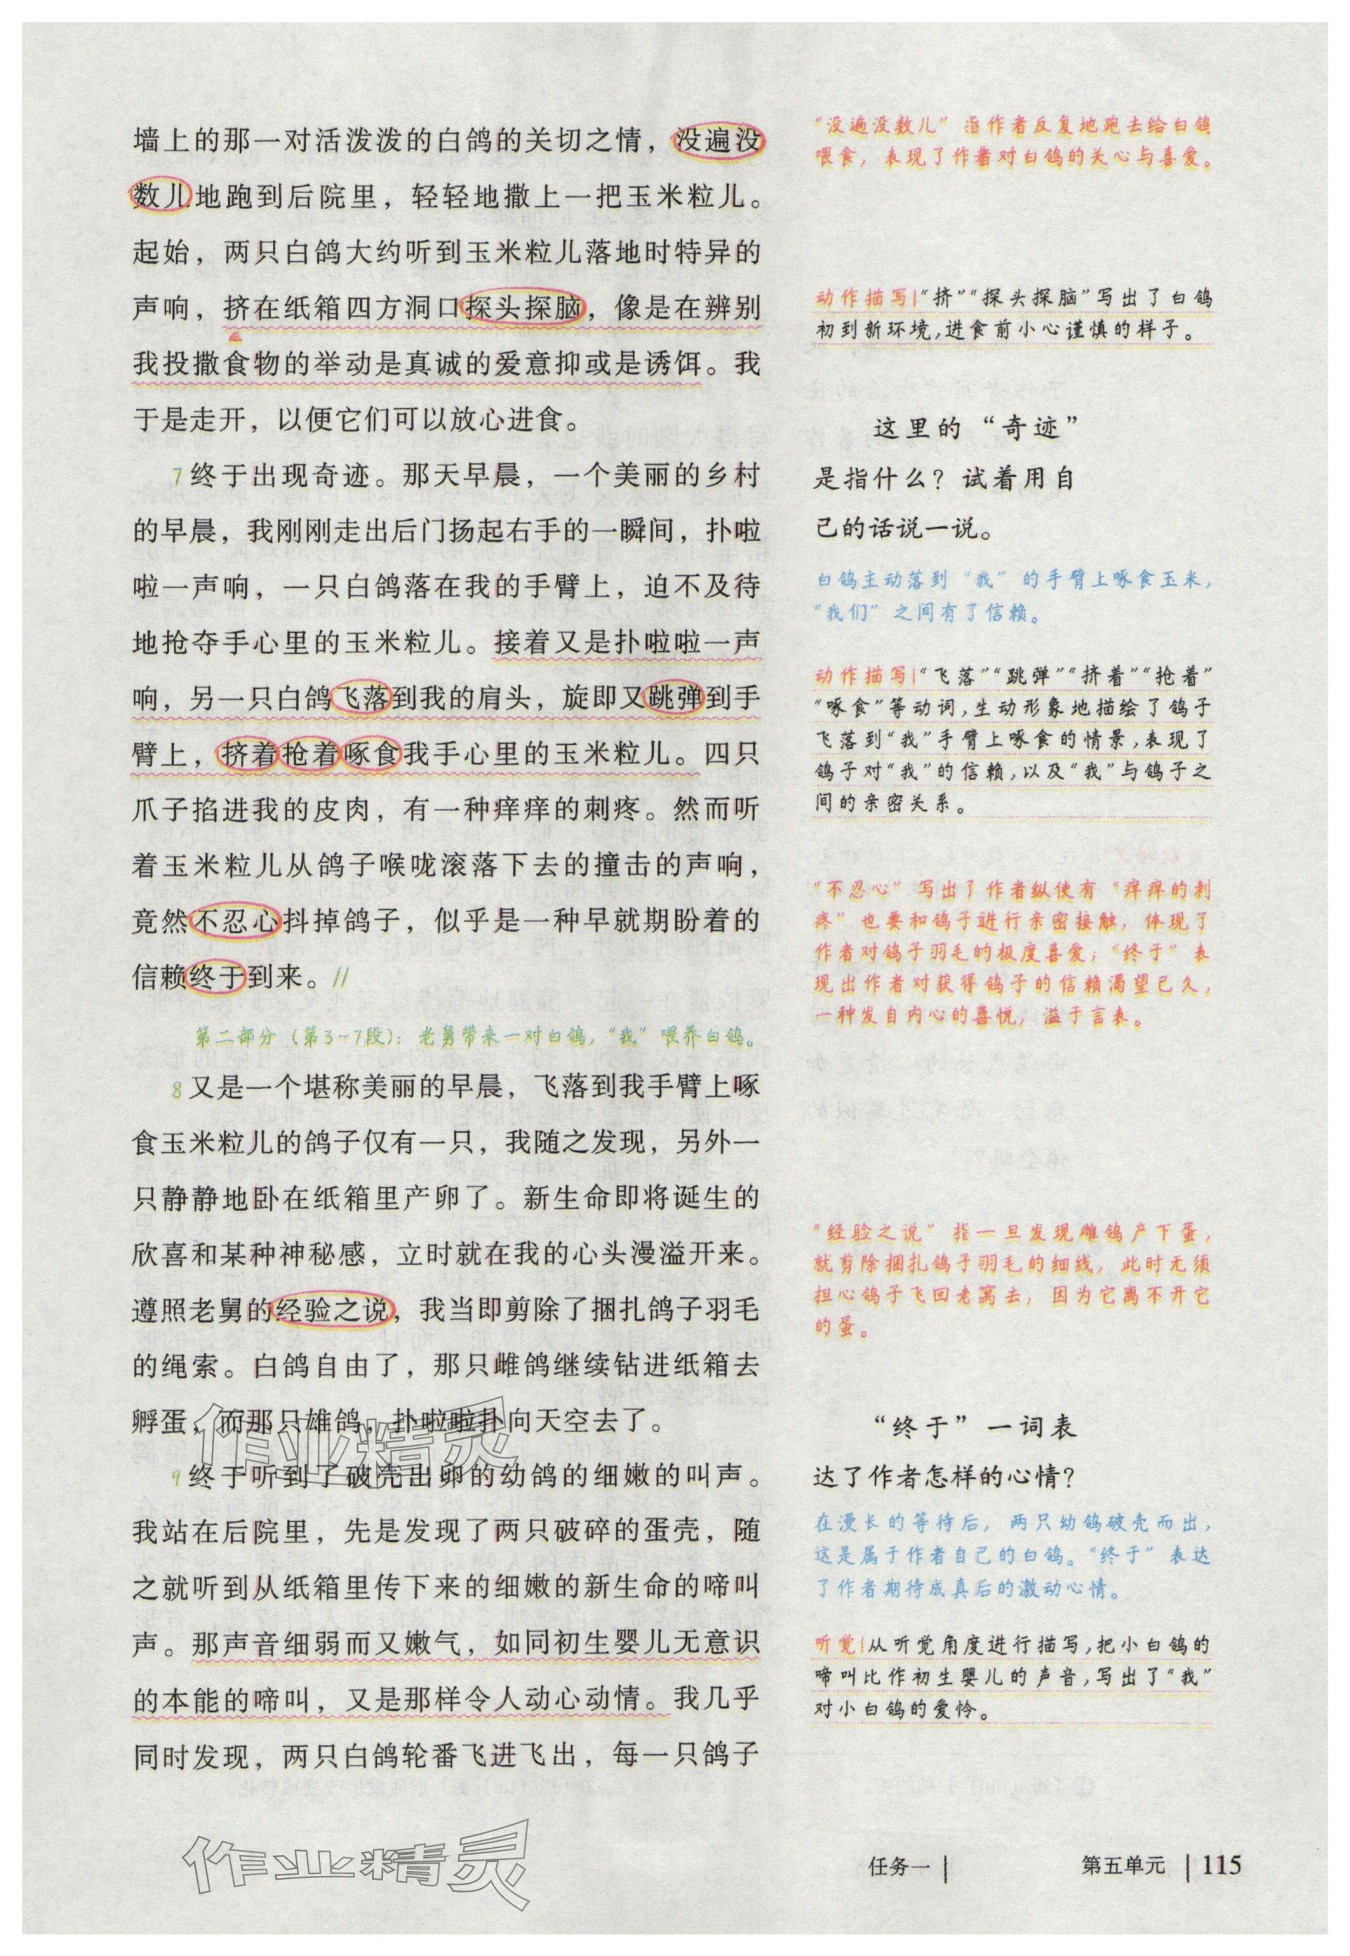 墙上的那一对活泼泼的白鸽的关切之情，没遍没
数儿地跑到后院里，轻轻地撒上一把玉米粒儿。
起始，两只白鸽大约听到玉米粒儿落地时特异的
声响，挤在纸箱四方洞口探头探脑，像是在辨别
我投撒食物的举动是真诚的爱意抑或是诱饵。我
于是走开，以便它们可以放心进食。
7 终于出现奇迹。那天早晨，一个美丽的乡村
的早晨，我刚刚走出后门扬起右手的一瞬间，扑啦
啦一声响，一只白鸽落在我的手臂上，迫不及待
地抢夺手心里的玉米粒儿。接着又是扑啦啦一声
响，另一只白鸽飞落到我的肩头，旋即又跳弹到手
臂上，挤着抢着啄食我手心里的玉米粒儿。四只
爪子掐进我的皮肉，有一种痒痒的刺疼。然而听
着玉米粒儿从鸽子喉咙滚落下去的撞击的声响，
竟然不忍心抖掉鸽子，似乎是一种早就期盼着的
信赖终于到来。//
第二部分（第3-7段）：老舅带来一对白鸽，“我”喂养白鸽。
8 又是一个堪称美丽的早晨，飞落到我手臂上啄
食玉米粒儿的鸽子仅有一只，我随之发现，另外一
只静静地卧在纸箱里产卵了。新生命即将诞生的
欣喜和某种神秘感，立时就在我的心头漫溢开来。
遵照老舅的经验之说，我当即剪除了捆扎鸽子羽毛
的绳索。白鸽自由了，那只雌鸽继续钻进纸箱去
孵蛋，而那只雄鸽，扑啦啦扑向天空去了。
9 终于听到了破壳出卵的幼鸽的细嫩的叫声。
我站在后院里，先是发现了两只破碎的蛋壳，随
之就听到从纸箱里传下来的细嫩的新生命的啼叫
声。那声音细弱而又嫩气，如同初生婴儿无意识
的本能的啼叫，又是那样令人动心动情。我几乎
同时发现，两只白鸽轮番飞进飞出，每一只鸽子
“没遍没数儿”指作者反复地跑去给白鸽
喂食，表现了作者对白鸽的关心与喜爱。
动作描写|“挤”“探头探脑”写出了白鸽
初到新环境，进食前小心谨慎的样子。
这里的“奇迹”
是指什么？试着用自
己的话说一说。
白鸽主动落到“我”的手臂上啄食玉米，
“我们”之间有了信赖。
动作描写|“飞落”“跳弹”“挤着”“抢着”
“啄食”等动词，生动形象地描绘了鸽子
飞落到“我”手臂上啄食的情景，表现了
鸽子对“我”的信赖，以及“我”与鸽子之
间的亲密关系。
“不忍心”写出了作者纵使有“痒痒的刺
疼”也要和鸽子进行亲密接触，体现了
作者对鸽子羽毛的极度喜爱；“终于”表
现出作者对获得鸽子的信赖渴望已久，
一种发自内心的喜悦，溢于言表。
“经验之说”指一旦发现雌鸽产下蛋，
就剪除捆扎鸽子羽毛的细线，此时无须
担心鸽子飞回老窝去，因为它离不开它
的蛋。
“终于”一词表
达了作者怎样的心情？
在漫长的等待后，两只幼鸽破壳而出，
这是属于作者自己的白鸽。“终于”表达
了作者期待成真后的激动心情。
听觉|从听觉角度进行描写，把小白鸽的
啼叫比作初生婴儿的声音，写出了“我”
对小白鸽的爱怜。
作业精灵
作业精灵
任务一 | 第五单元 | 115